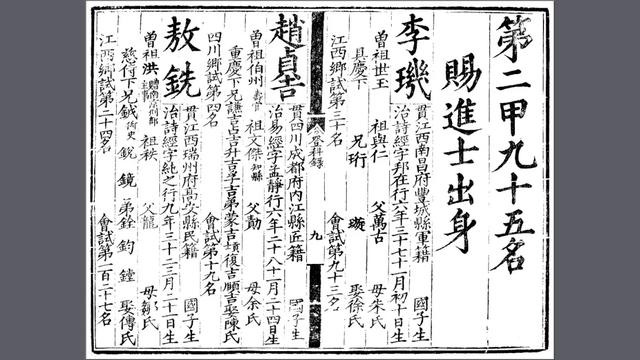 第二甲九十五名
賜進士出身
李璣
貫江西南昌府豐城縣軍籍 國子生
治詩經字邦在行六年三十七十一月初十日生
曾祖世玉 祖與仁 父萬古 母朱氏
具慶下 兄珩 璇 娶徐氏
江西鄉試第三十名 會試第九十三名
登科錄 九
趙貞吉
貫四川成都府內江縣匠籍 國子生
治易經字孟靜行六年二十八十一月二十四日生
曾祖伯州 祖文傑 知縣 父勣 母余氏
重慶下 兄謙吉 弟蒙吉 復吉 順吉 娶陳氏
四川鄉試第四名 會試第十九名
敖銑
貫江西瑞州府高安縣民籍 國子生
治詩經字純之行九年三十三月二十日生
曾祖洪 祖秩 父龍 母鄒氏
慈侍下 兄鉞 銳 鏡 弟銓 鈞 鏜 娶傅氏
江西鄉試第二十四名 會試第一百二十七名